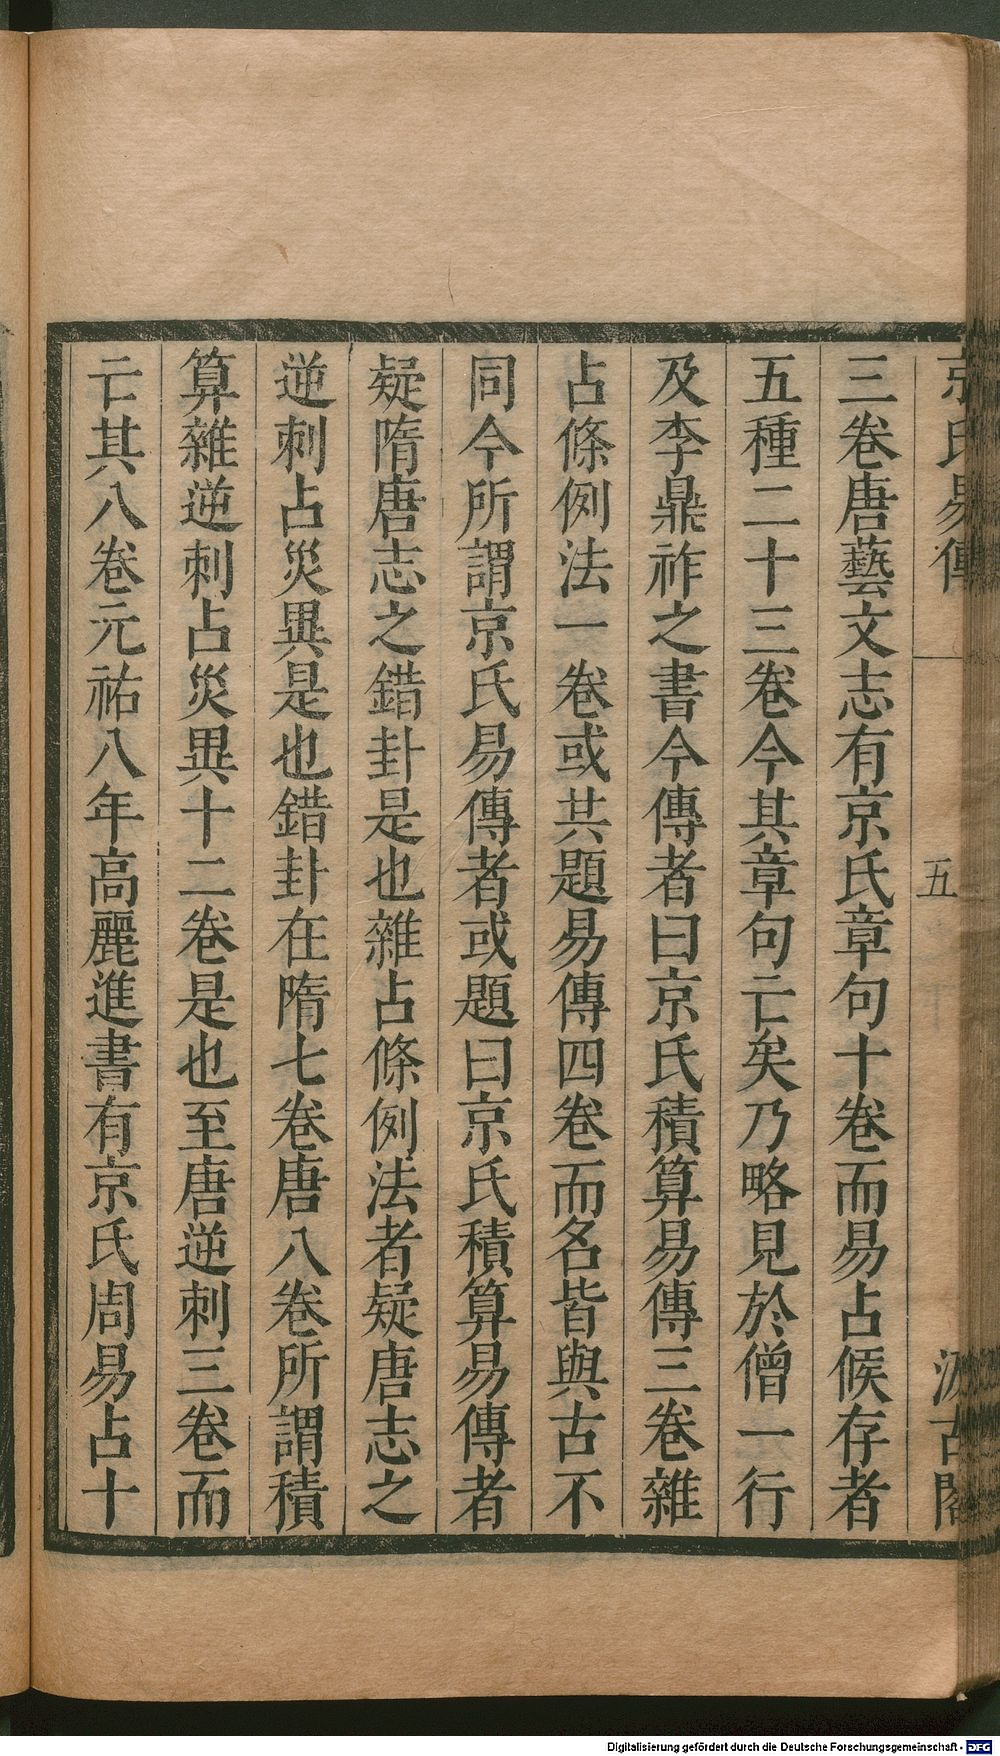 京氏易傳
五
汲古閣
三卷唐藝文志有京氏章句十卷而易占候存者
五種二十三卷今其章句亡矣乃略見於僧一行
及李鼎祚之書今傳者曰京氏積算易傳三卷雜
占條例法一卷或共題易傳四卷而名皆與古不
同今所謂京氏易傳者或題曰京氏積算易傳者
疑隋唐志之錯卦是也雜占條例法者疑唐志之
逆刺占災異是也錯卦在隋七卷唐八卷所謂積
算雜逆刺占災異十二卷是也至唐逆刺三卷而
亡其八卷元祐八年高麗進書有京氏周易占十
Digitalisierung gefördert durch die Deutsche Forschungsgemeinschaft - DFG